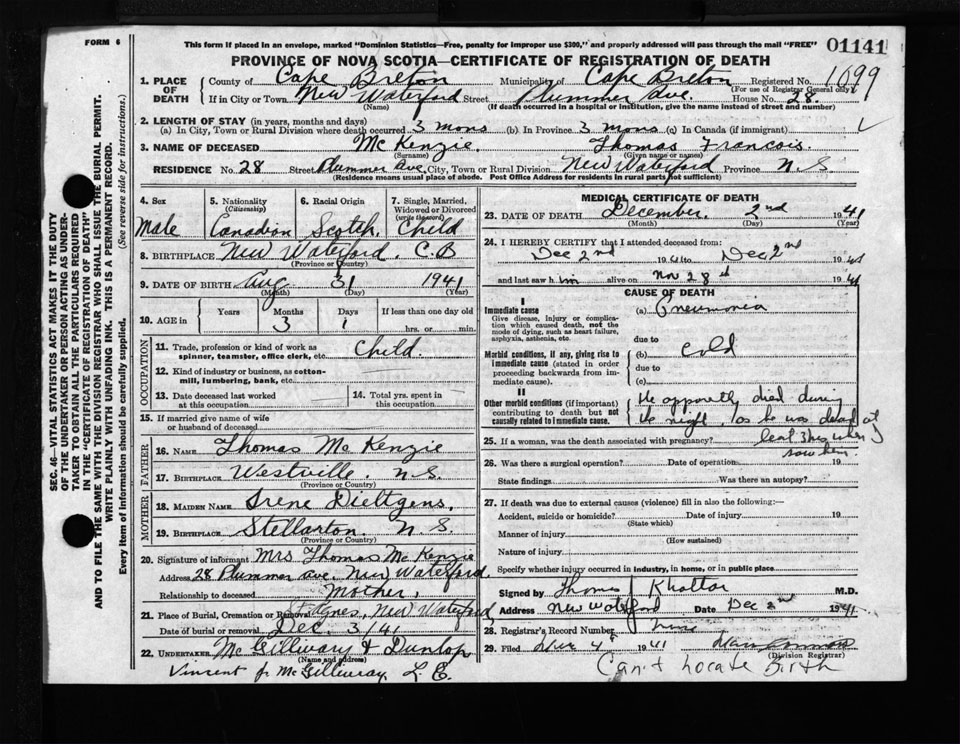 FORM 6
This form if placed in an envelope, marked "Dominion Statistics—Free, penalty for improper use $300," and properly addressed will pass through the mail "FREE"
01141
PROVINCE OF NOVA SCOTIA—CERTIFICATE OF REGISTRATION OF DEATH
1. PLACE OF DEATH County of Cape Breton Municipality of Cape Breton Registered No. 1099
(For use of Registrar General only)
If in City or Town New Waterford Street Plummer Ave. House No. 28.
(Name) (If death occurred in a hospital or institution, give the name instead of street and number)
2. LENGTH OF STAY (in years, months and days)
(a) In City, Town or Rural Division where death occurred 3 mons (b) In Province 3 mons (c) In Canada (if immigrant)
3. NAME OF DECEASED McKenzie. Thomas Francois.
(Surname) (Given name or names)
RESIDENCE No. 28 Street Plummer Ave. City, Town or Rural Division New Waterford Province N.S.
(Residence means usual place of abode. Post Office Address for residents in rural parts not sufficient)
4. Sex Male
5. Nationality (Citizenship) Canadian
6. Racial Origin Scotch.
7. Single, Married, Widowed or Divorced (write the word) Child
8. BIRTHPLACE New Waterford, C.B
(Province or Country)
9. DATE OF BIRTH Aug 31 1941
(Month) (Day) (Year)
10. AGE in Years Months 3 Days 1 If less than one day old hrs. or min.
OCCUPATION
11. Trade, profession or kind of work as spinner, teamster, office clerk, etc. Child.
12. Kind of industry or business, as cotton-mill, lumbering, bank, etc.
13. Date deceased last worked at this occupation
14. Total yrs. spent in this occupation
15. If married give name of wife or husband of deceased
FATHER
16. NAME Thomas McKenzie
17. BIRTHPLACE Westville, N.S.
(Province or Country)
MOTHER
18. MAIDEN NAME Irene Dieltgens.
19. BIRTHPLACE Stellarton N.S.
(Province or Country)
20. Signature of informant Mrs Thomas McKenzie
Address 28 Plummer Ave. New Waterford.
Relationship to deceased Mother,
21. Place of Burial, Cremation or Removal St Agnes, New Waterford
Date of burial or removal Dec. 3/41
22. UNDERTAKER McGillivary & Dunlop
(Name and address)
Vincent J. McGillivray, L.E.
MEDICAL CERTIFICATE OF DEATH
23. DATE OF DEATH December, 2nd 1941
(Month) (Day) (Year)
24. I HEREBY CERTIFY that I attended deceased from:
Dec 2nd 1941 to Dec 2nd 1941
and last saw him alive on Nov 28 1941
CAUSE OF DEATH
I
Immediate cause
Give disease, injury or complication which caused death, not the mode of dying, such as heart failure, asphyxia, asthenia, etc.
(a) Pneumonia
due to
Morbid conditions, if any, giving rise to immediate cause (stated in order proceeding backwards from immediate cause).
(b) cold
due to
(c)
II
Other morbid conditions (if important) contributing to death but not causally related to immediate cause.
He apparently died during the night, as he was dead at least 3 hrs when I saw him.
25. If a woman, was the death associated with pregnancy?
26. Was there a surgical operation? Date of operation 19
State findings Was there an autopsy?
27. If death was due to external causes (violence) fill in also the following:—
Accident, suicide or homicide? Date of injury 19
(State which)
Manner of injury
(How sustained)
Nature of injury
Specify whether injury occurred in industry, in home, or in public place
Signed by Thomas J Khattar M.D.
Address New Waterford Date Dec 2nd 1941
28. Registrar's Record Number
29. Filed Dec 4th 1941
(Division Registrar)
Can't Locate Birth
SEC. 46—VITAL STATISTICS ACT MAKES IT THE DUTY OF THE UNDERTAKER OR PERSON ACTING AS UNDERTAKER TO OBTAIN ALL THE PARTICULARS REQUIRED IN THE "CERTIFICATE OF REGISTRATION OF DEATH" AND TO FILE THE SAME WITH THE DIVISION REGISTRAR WHO SHALL ISSUE THE BURIAL PERMIT.
WRITE PLAINLY WITH UNFADING INK. THIS IS A PERMANENT RECORD.
Every item of information should be carefully supplied. (See reverse side for instructions.)